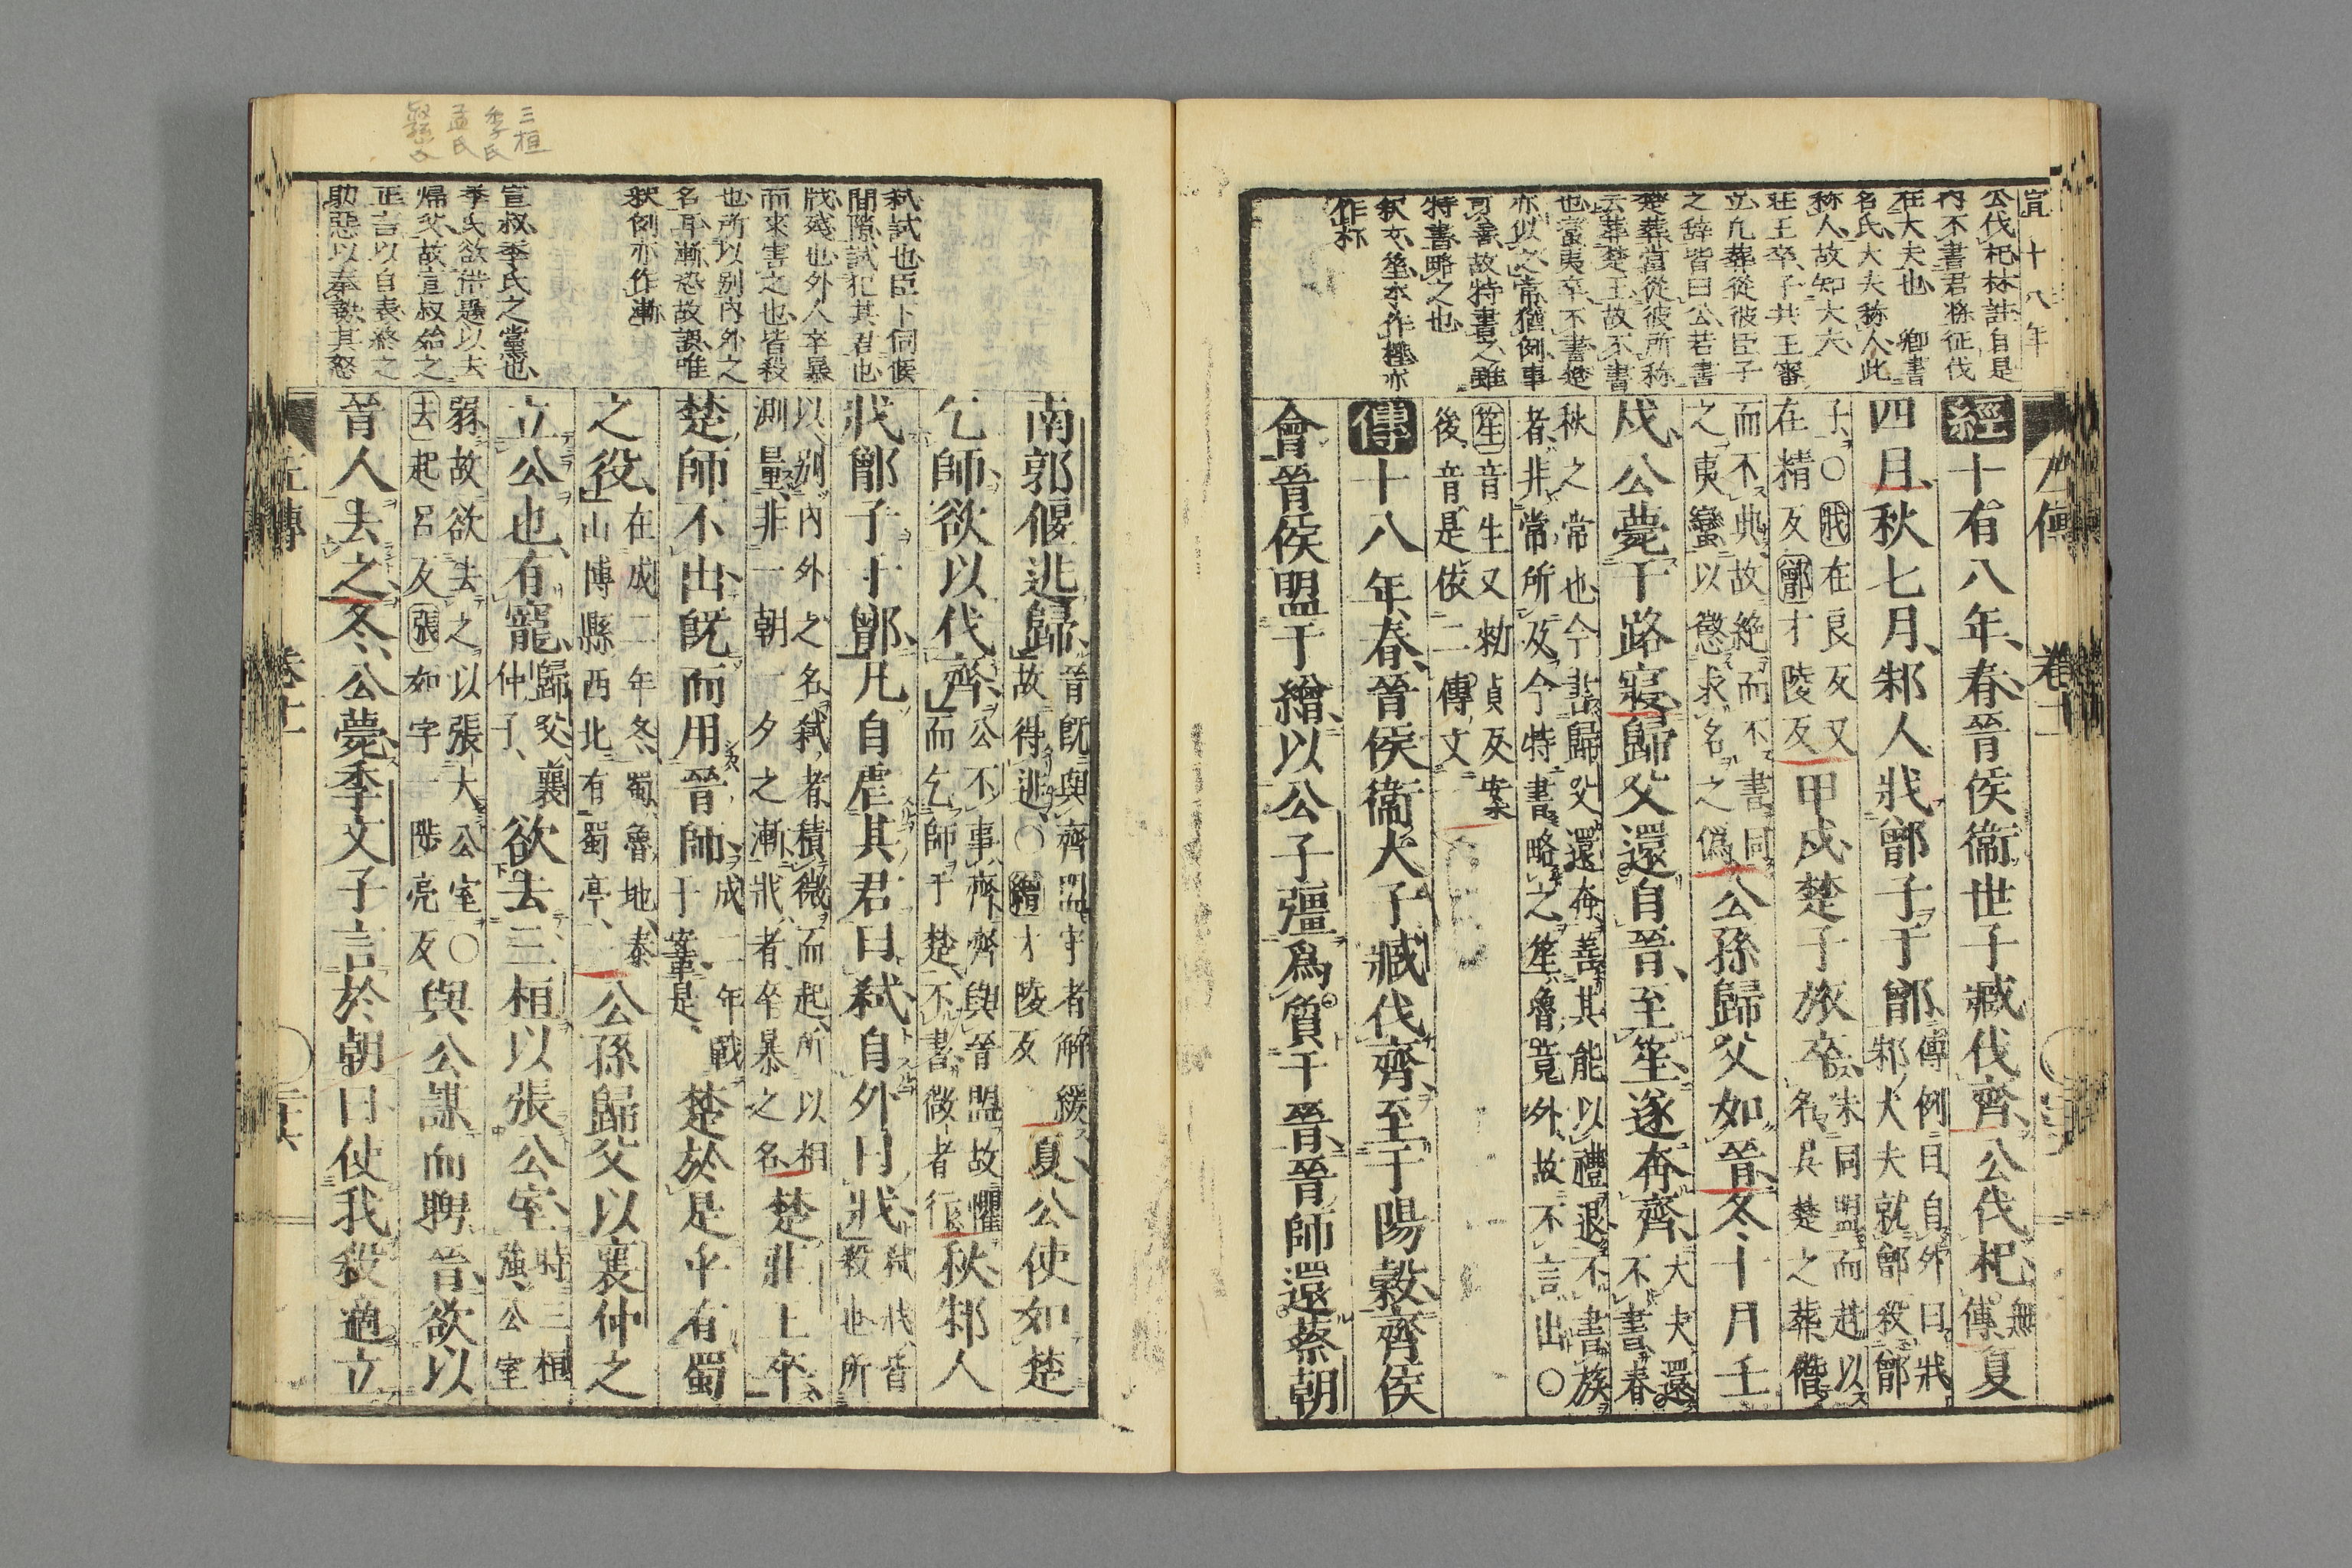 宣十八年
公伐杞林註自是
内不書君將征伐
在大夫也　卿書
名氏大夫稱人此
稱人故知大夫
莊王卒子共王審
立凡葬從彼臣子
之辭皆曰公若書
楚葬當從彼所稱
云葬楚王故不書
也當夷卒不書葬
亦以之常猶例事
可善故特書之雖
特書略之也
釈文笙本作檉亦
作朾
左傳　卷十二
經十有八年春晉侯衞世子臧伐齊公伐杞無傳夏
四月秋七月邾人戕鄫子于鄫傳例曰自外曰戕邾大夫就鄫殺鄫
子〇戕在良反又在精反鄫才陵反甲戌楚子旅卒未同盟而赴以名吳楚之葬僭
而不典故絶而不書同之夷蠻以懲求名之僞公孫歸父如晉冬十月壬
戌公薨于路寢歸父還自晉至笙遂奔齊大夫還不書春
秋之常也今書歸父還奔善其能以禮退不書族者非常所及今特書略之笙魯竟外故不言出〇
笙音生又勑貞反案後音是依二傳文
傳十八年春晉侯衞大子臧伐齊至于陽穀齊侯
會晉侯盟于繒以公子彊爲質于晉晉師還蔡朝
南郭偃逃歸晉既與齊盟守者解緩故得逃〇繒才陵反夏公使如楚
乞師欲以代齊公不事齊齊與晉盟故懼而乞師于楚不書微者行秋邾人
戕鄫子于鄫凡自虐其君曰弑自外曰戕弑戕皆殺也所
以别内外之名弑者積微而起所以相測量非一朝一夕之漸戕者卒暴之名楚莊王卒
楚師不出既而用晉師成二年戰于鞌是楚於是乎有蜀
之役在成二年冬蜀魯地泰山博縣西北有蜀亭公孫歸父以襄仲之
立公也有寵歸父襄仲子欲去三桓以張公室時三桓強公室
弱故欲去之以張大公室〇去起呂反張如字一陟亮反與公謀而聘晉欲以
晉人去之冬公薨季文子言於朝曰使我殺適立
弑試也臣下伺候
間隙試犯其君也
戕殘也外人卒暴
而來害之也皆殺
也所以别内外之
名耳漸恐故誤唯
釈例亦作漸
宣叔季氏之黨也
季氏欲借題以去
歸父故宣叔始之
正言以自表終之
助惡以奉其怒
三桓
季氏
孟氏
左傳　卷十二